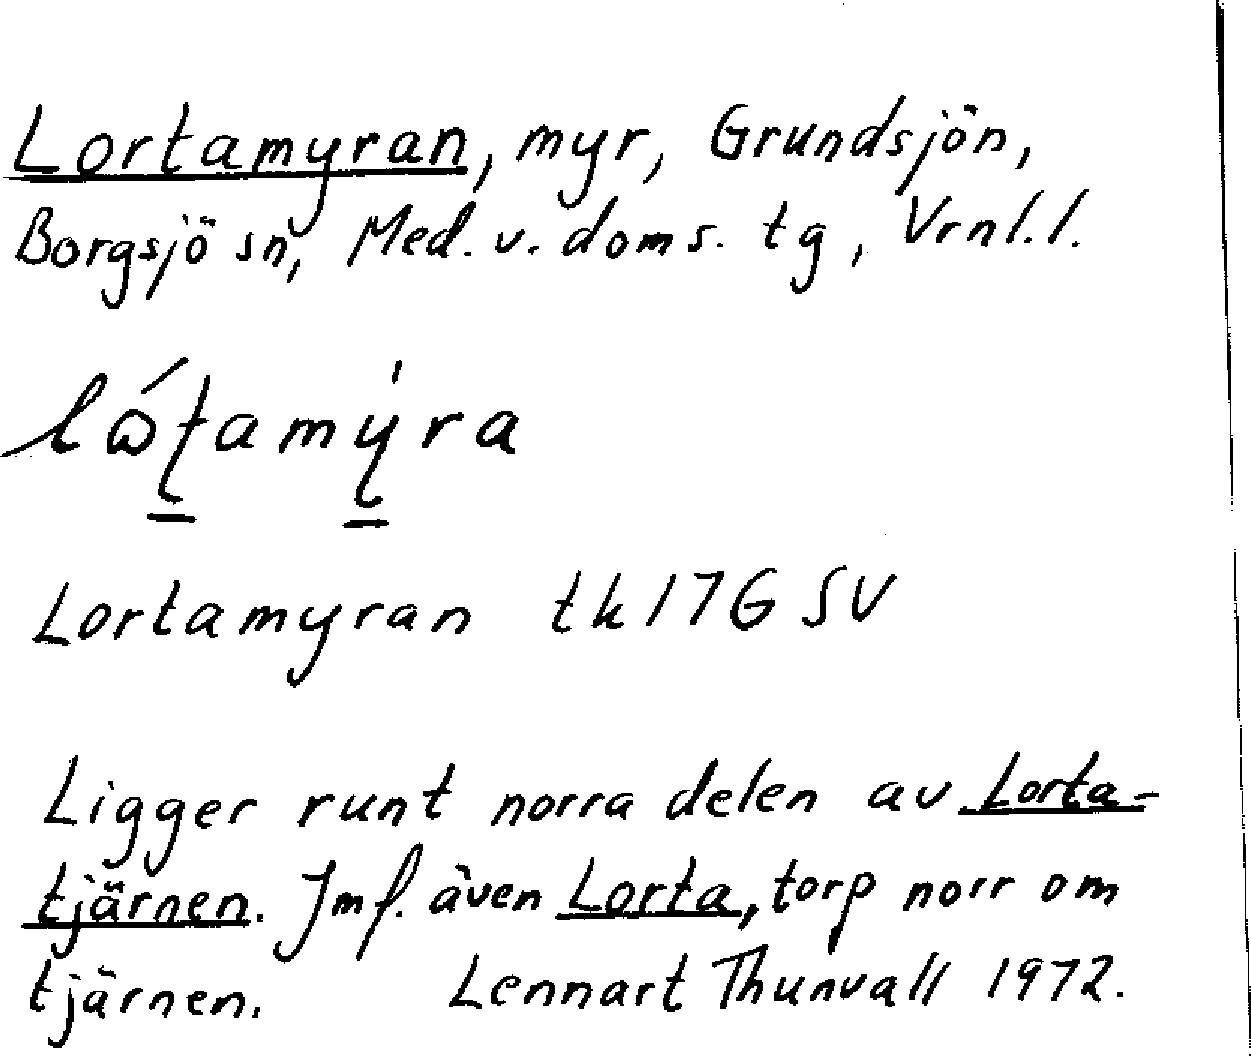 Lortamyran, myr, Grundsjön,
Borgsjö sn, Med. v. doms. tg, Vrnl.l.
Lortamyran tk 17G SV
Ligger runt norra delen av Lorta-
tjärnen. Jmf. även Lorta, torp norr om
tjärnen. Lennart Thunvall 1972.